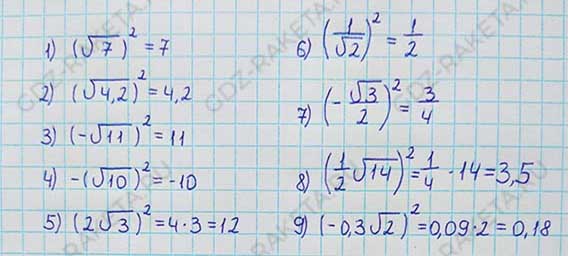 1) (√7)² = 7
2) (√4,2)² = 4,2
3) (-√11)² = 11
4) -(√10)² = -10
5) (2√3)² = 4·3 = 12
6) (1/√2)² = 1/2
7) (-√3/2)² = 3/4
8) (1/2 √14)² = 1/4 · 14 = 3,5
9) (-0,3√2)² = 0,09·2 = 0,18
GDZ-RAKETA.RU